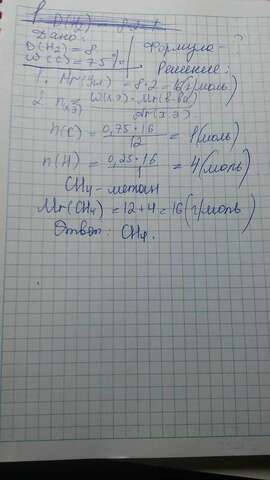 Дано:
D(H₂) = 8
W(C) = 75%
Формула -
Решение:
1. Mr(Ув) = 8·2 = 16(г/моль)
2. n(х.э) = W(х.э)·Mr(в-ва)
Ar(х.э)
n(C) = 0,75·16 = 1(моль)
12
n(H) = 0,25·16 = 4(моль)
1
CH₄ - метан
Mr(CH₄) = 12+4 = 16(г/моль)
Ответ: CH₄.